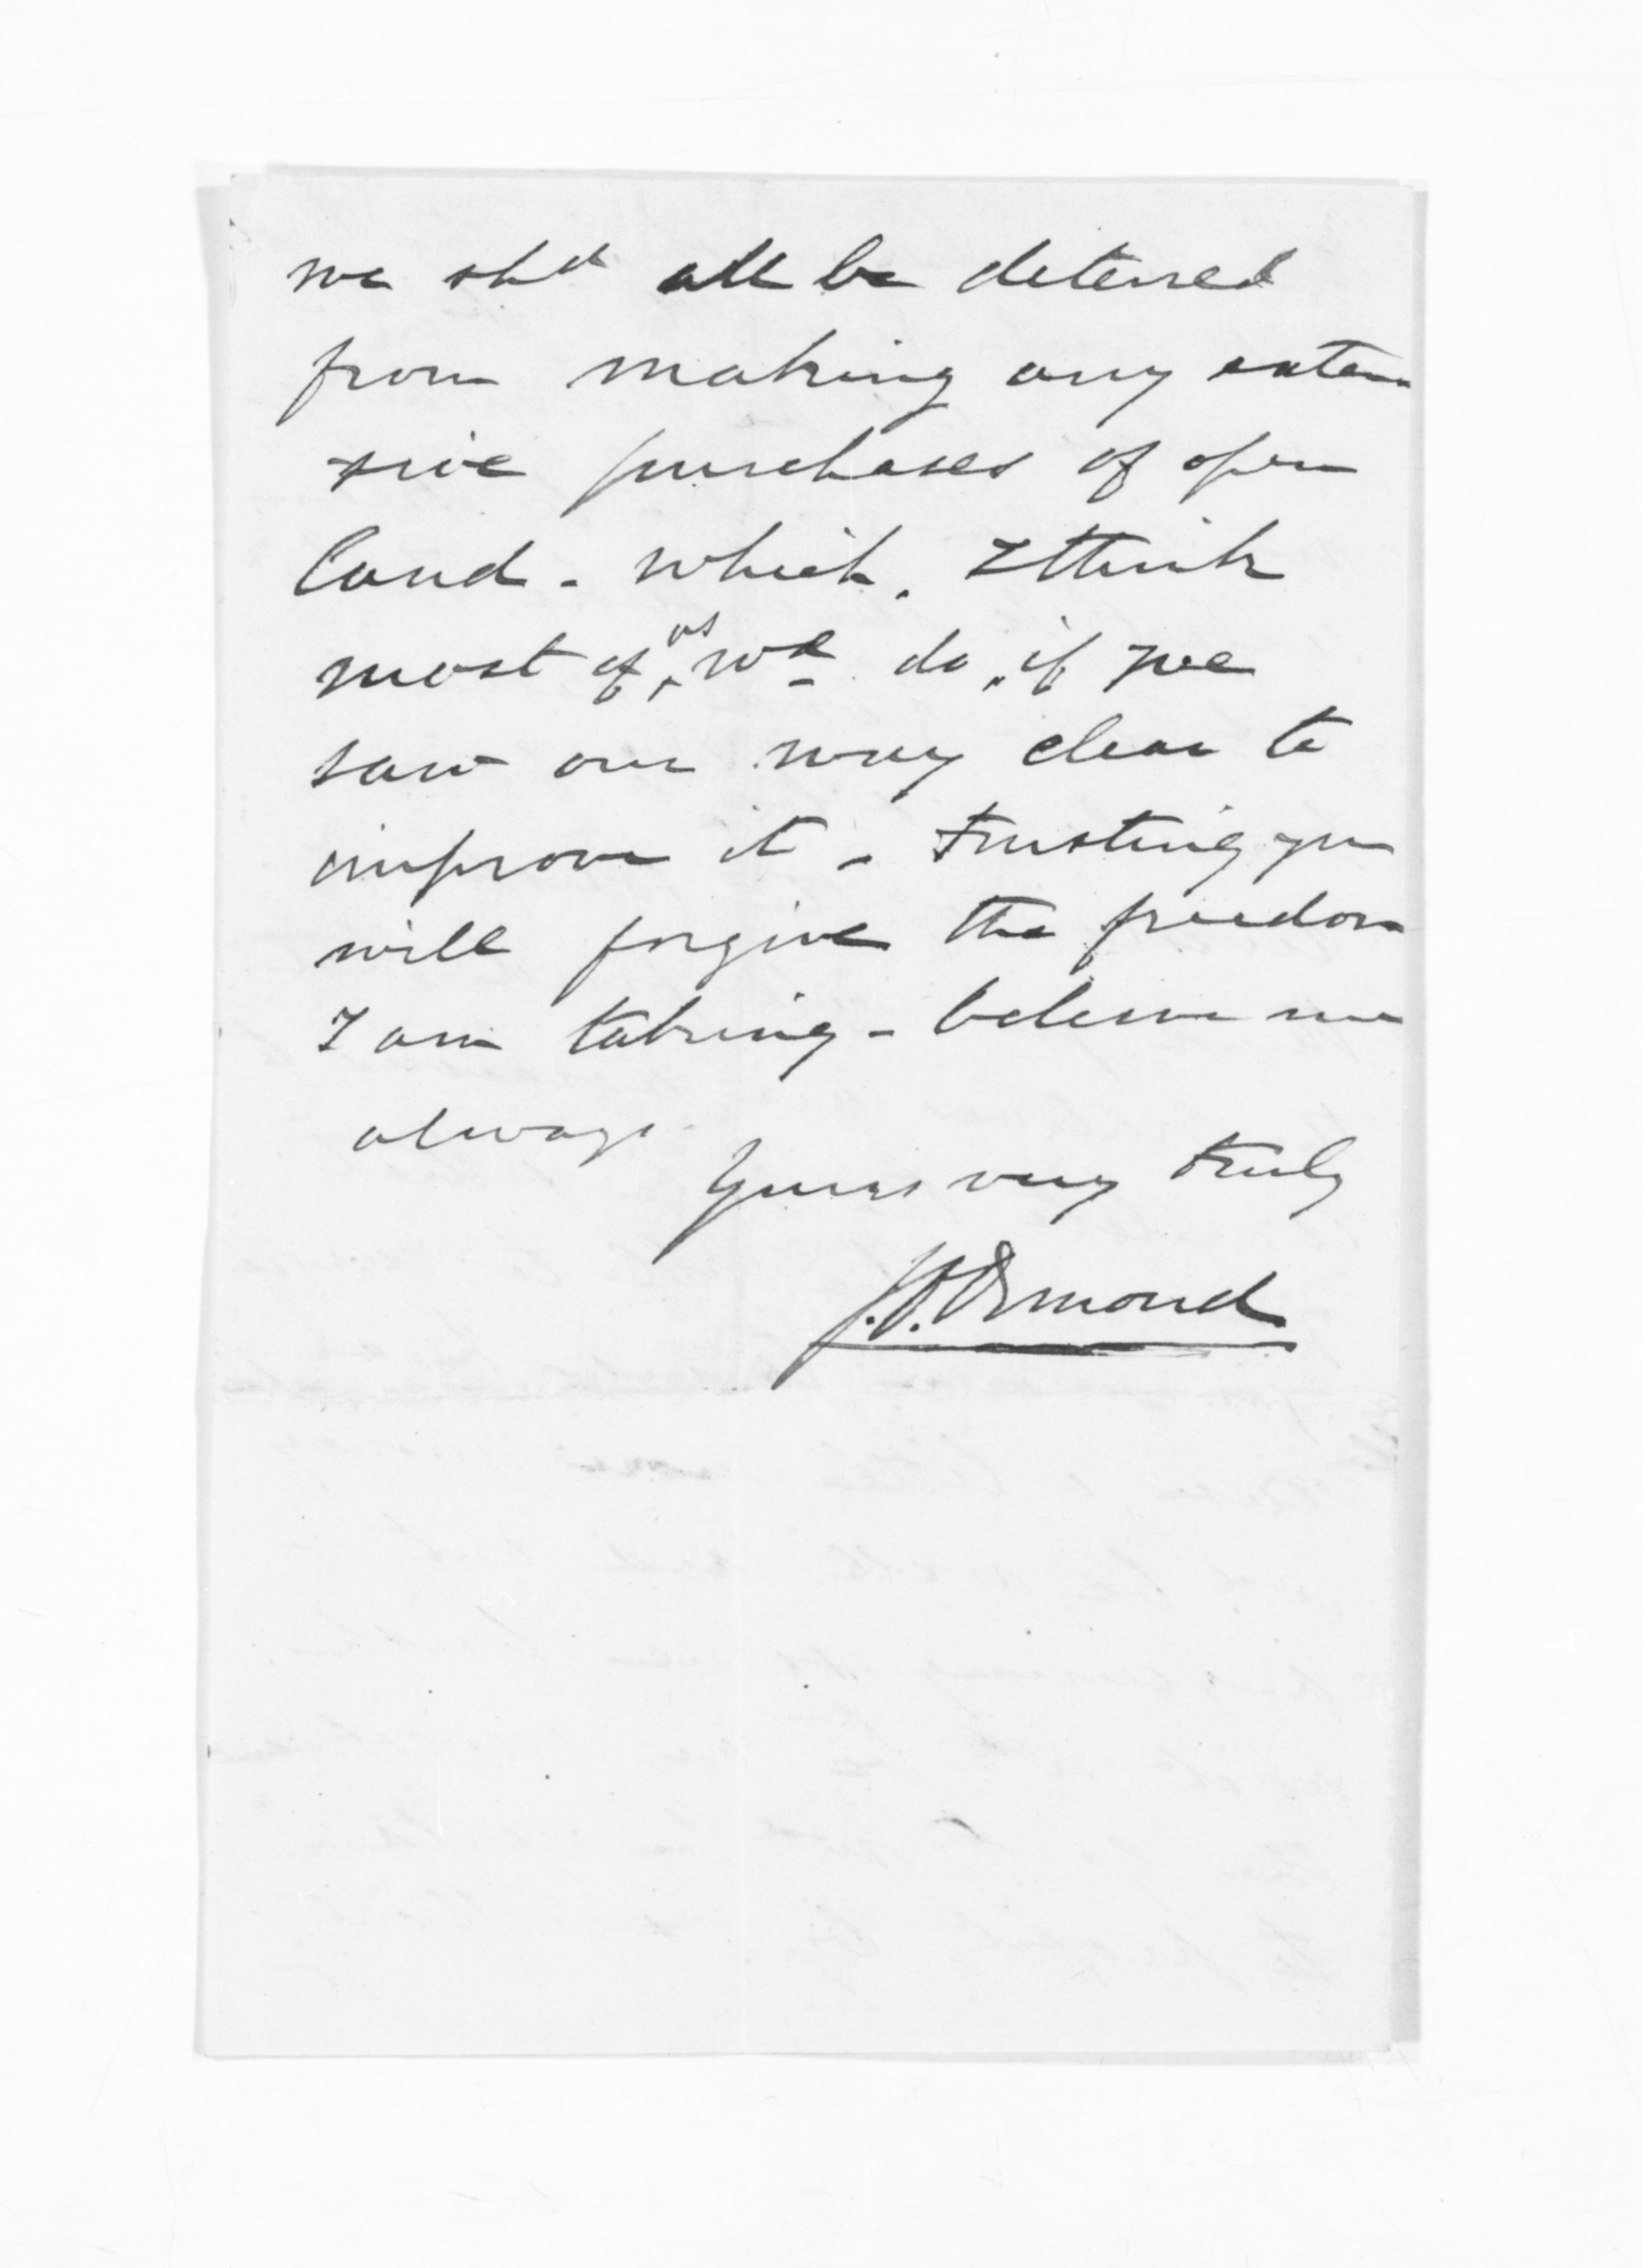 we shd all be deterred
from making any exten
sive purchases of open
land - which, I think
most of us wd do, if we
saw our way clear to
improve it - trusting you
will forgive the freedom
I am taking - believe me
always
Yours very truly
J.D. Ormond